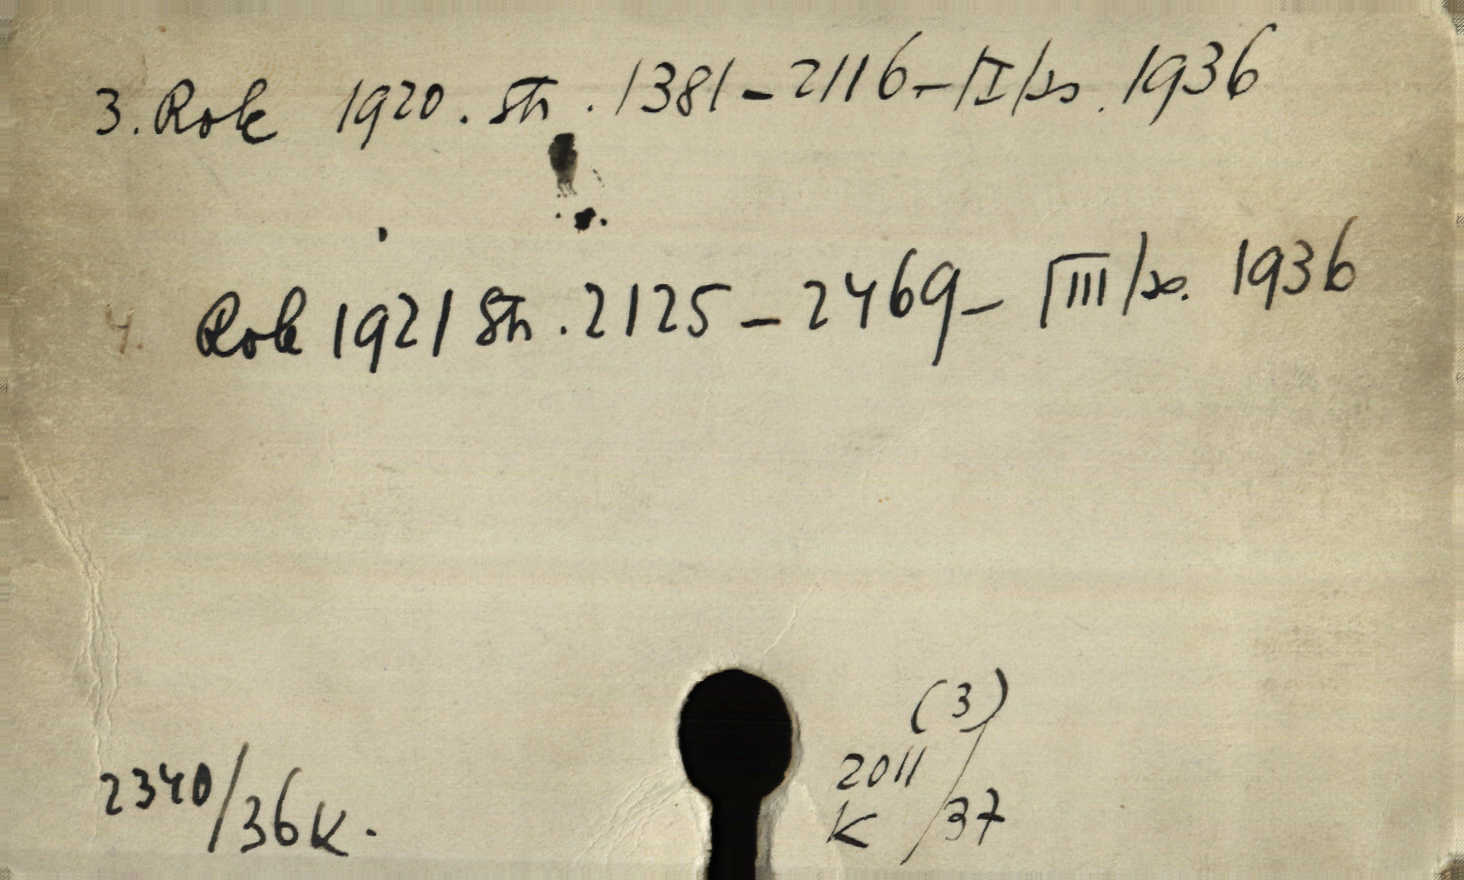 3. Rok 1920. Str. 1381-2116-II/20. 1936
4. Rok 1921 Str. 2125-2469- III/20. 1936
2340/36K.
(3)
2011
K/37